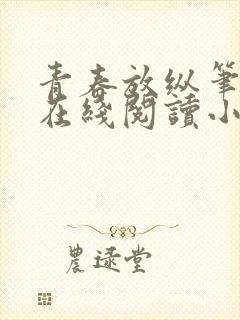 青春放纵筆
在綫閱讀小
農逯堂